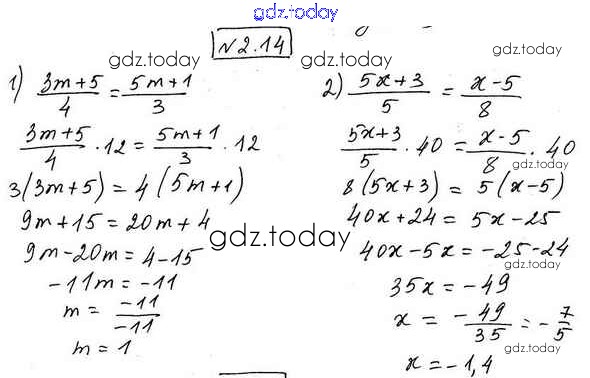 gdz.today
№2.14
1) (3m+5)/4 = (5m+1)/3
(3m+5)/4 · 12 = (5m+1)/3 · 12
3(3m+5) = 4(5m+1)
9m+15 = 20m+4
9m-20m = 4-15
-11m = -11
m = -11/-11
m = 1
2) (5x+3)/5 = (x-5)/8
(5x+3)/5 · 40 = (x-5)/8 · 40
8(5x+3) = 5(x-5)
40x+24 = 5x-25
40x-5x = -25-24
35x = -49
x = -49/35 = -7/5
x = -1,4
gdz.today
gdz.today
gdz.today
gdz.today
gdz.today
gdz.today
gdz.today
gdz.today
gdz.today